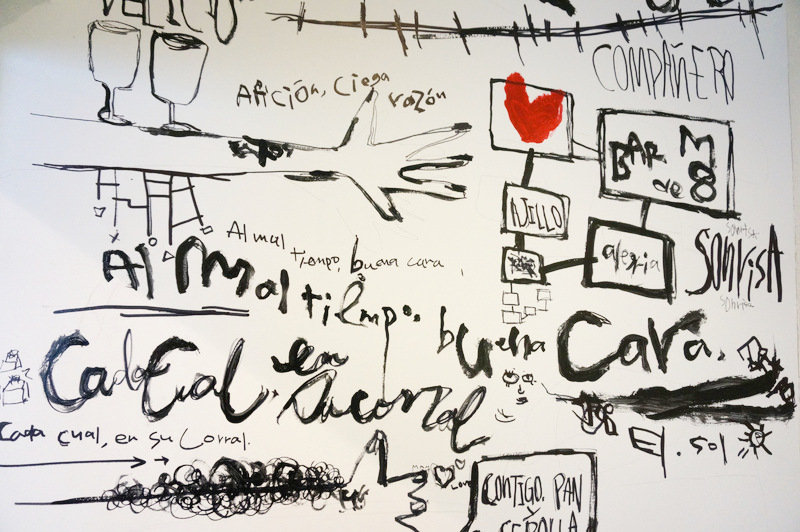 AfICIÓN, Ciega
razón
COMPAÑERO
BAR M
de 8
AJILLO
alexia
sonrisa
SONrISA
sonrisa
Al mal
tiempo, buena cara
Al Mal tiempo. buena Cara.
Cada Cual. en
Su corral
Cada cual, en su Corral.
El. sol
CONTIGO. PAN
Y
CEBOLLA